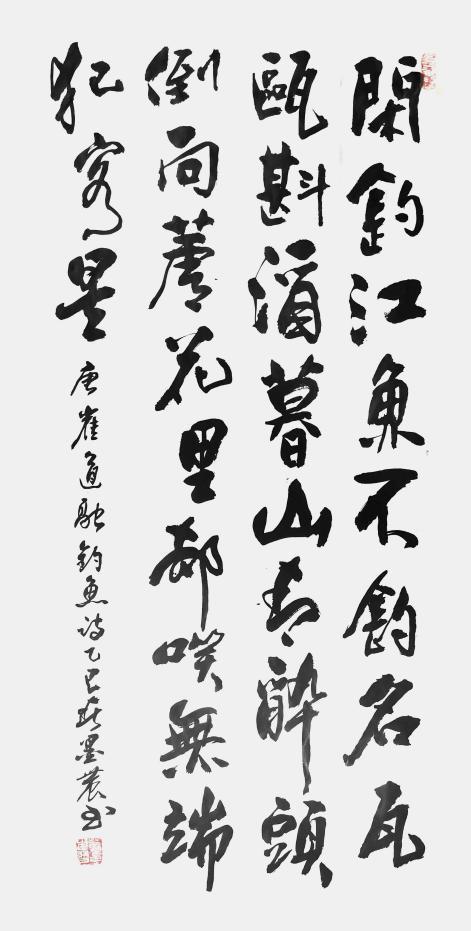 閑釣江魚不釣名瓦
甌斟酒暮山青醉頭
倒向蘆花里卻咲無端
犯客星
唐崔道融釣魚詩乙巳秋墨農書